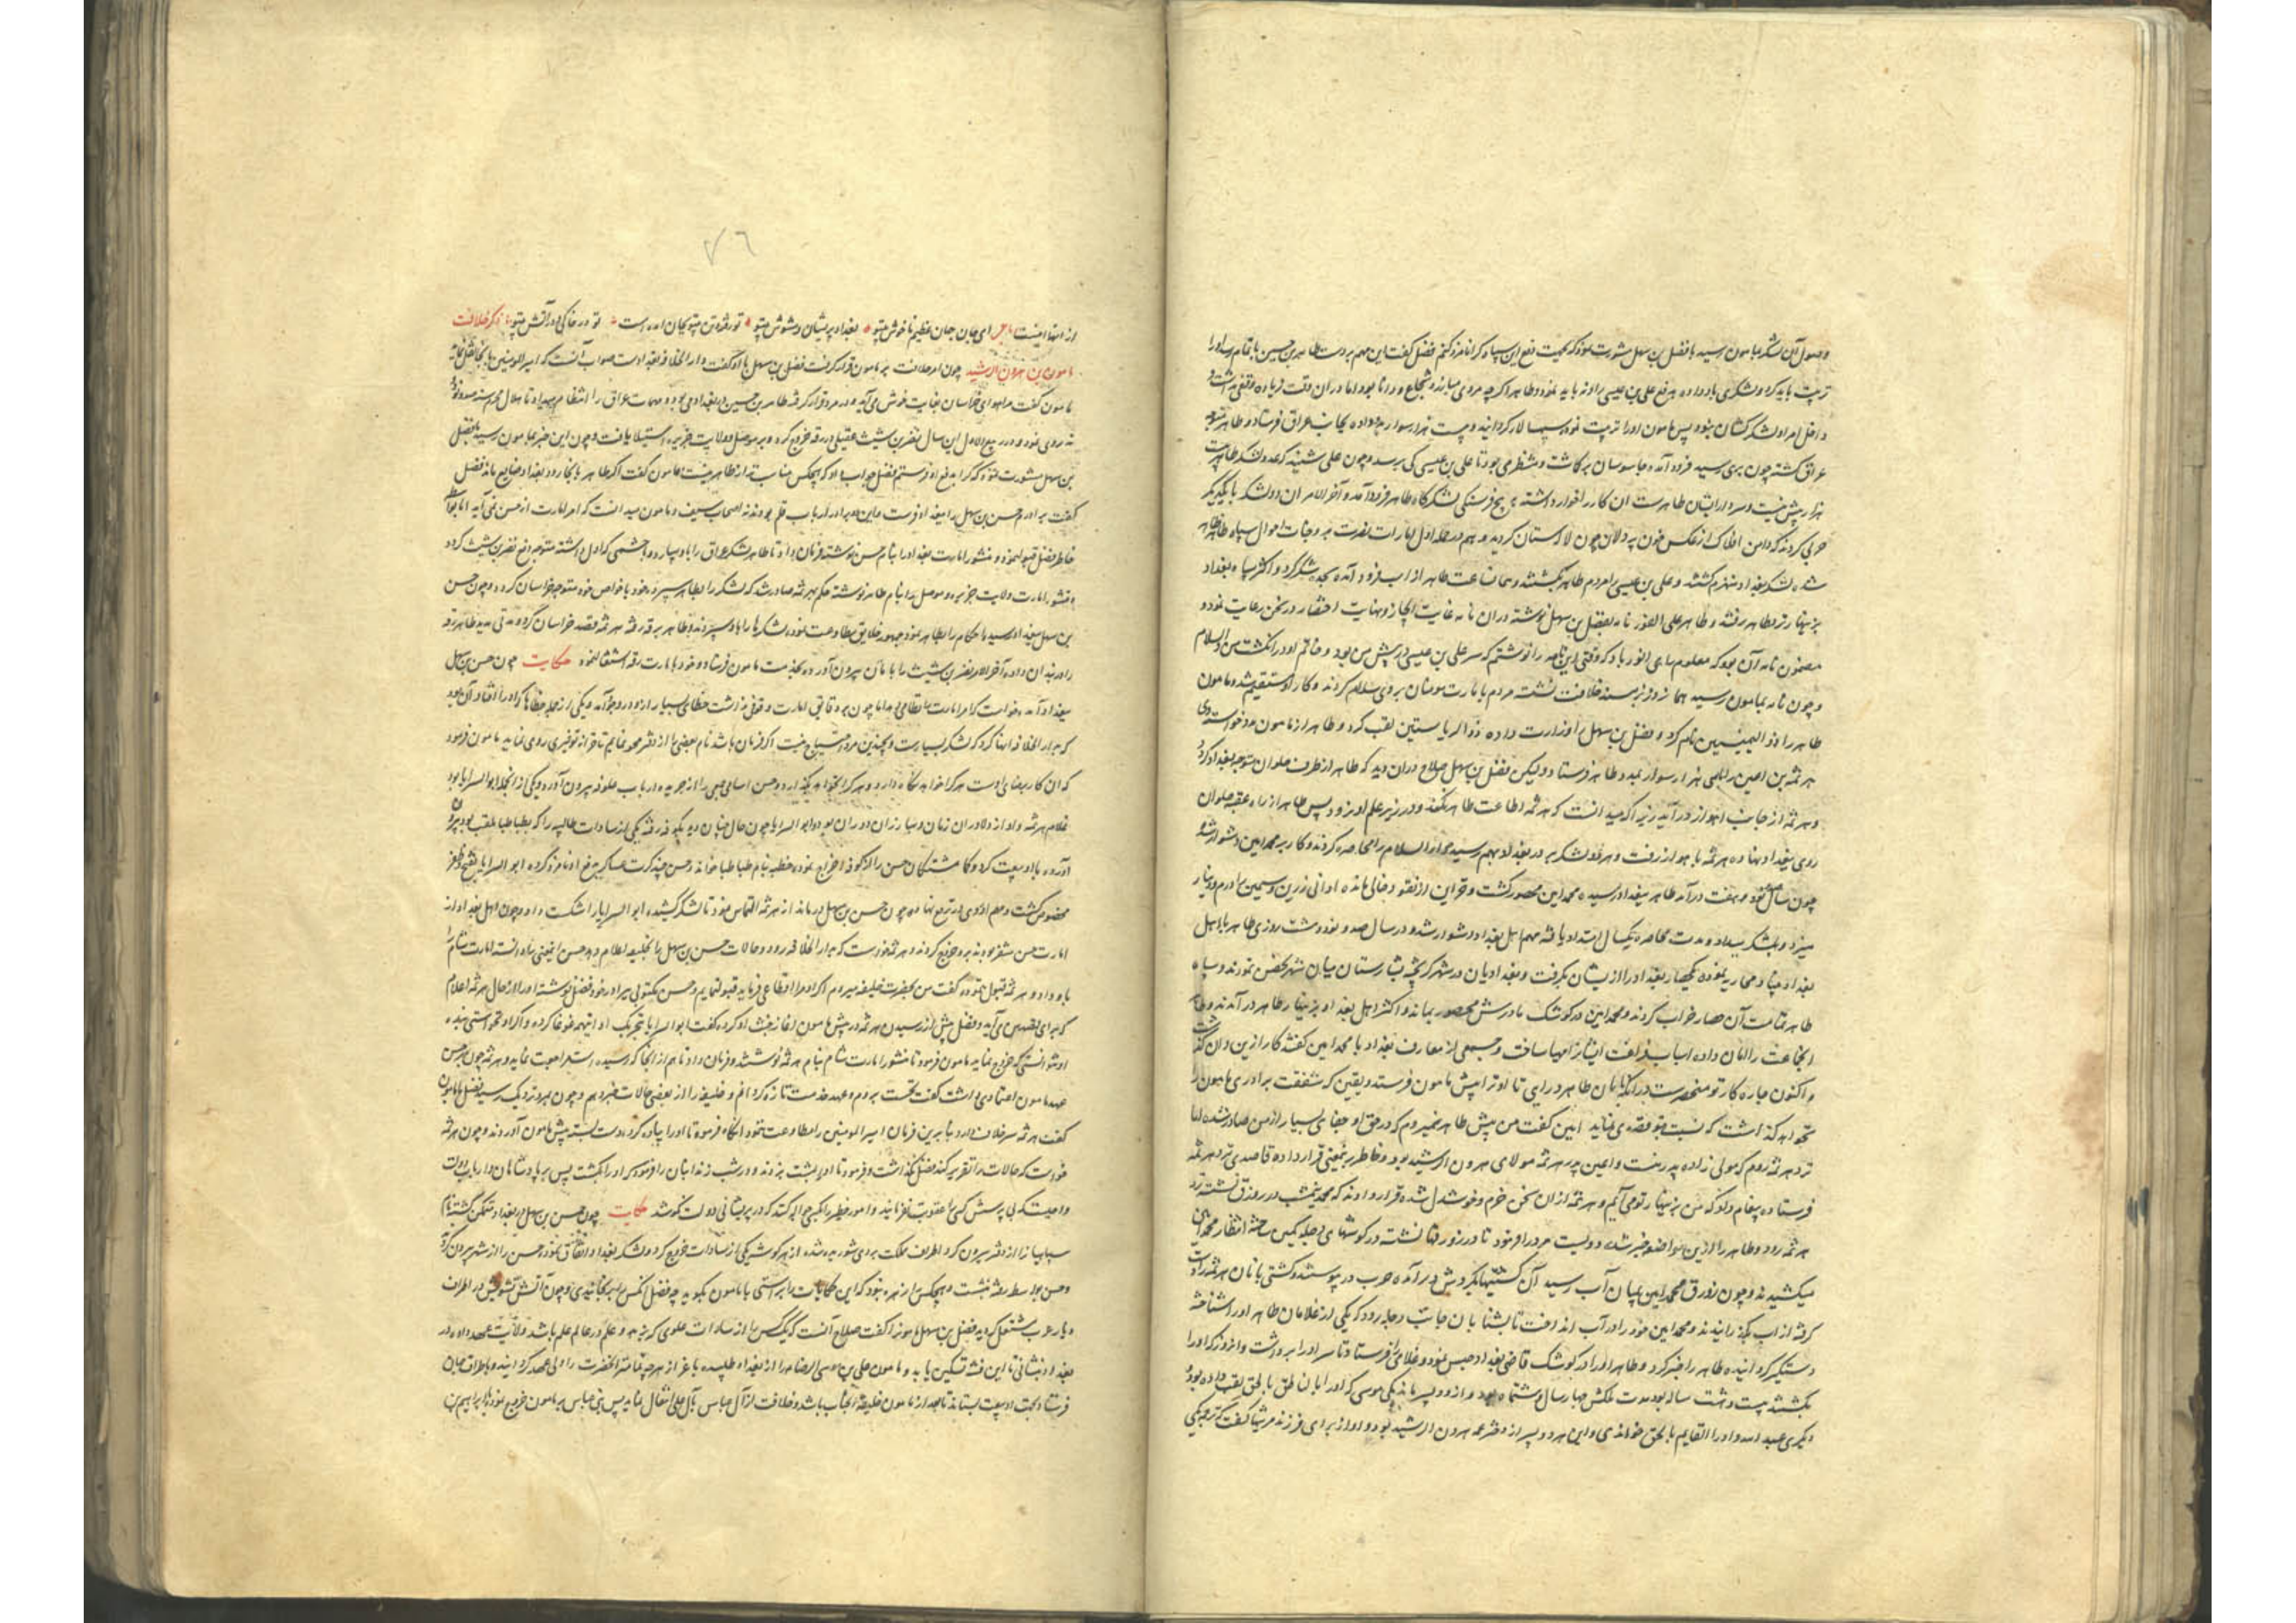 وصول آن لشکر بمامون رسید با فضل بن سهل مشورت نمود که بجهت دفع این سپاه کرا نامزد کنم فضل گفت این مهم بر دست طاهر بن حسین باتمام رسد اورا
تربیت باید کرد و لشکری باو داده بدفع علی بن عیسی روانه باید نمود و طاهر اگرچه مردی مبارز و شجاع و دانا بود اما دران وقت زیاده وقعی نداشت و
داخل امراء لشکرکشان نبود پس مامون اورا تربیت نموده سپهسالار گردانید و بیست هزار سوار بدو داده بجانب عراق فرستاد و طاهر متوجه
عراق گشته چون بری رسید فرود آمد و جاسوسان برگماشت و منتظر می بود تا علی بن عیسی کی برسد و چون علی شنید که عدد لشکر طاهر بیست
هزار بیش نیست و سردار ایشان طاهرست ان کار را خوار داشته بر پنج فرسنگی لشکرگاه طاهر فرود آمد و آخر الامر ان دو لشکر با یکدیگر
حربی کردند که دامن افلاک از عکس خون پردلان چون لالستان گردید و هم در حمله اول امارات نصرت بر وجنات احوال سپاه طاهر ظاهر
شده لشکر بغداد منهزم گشتند و علی بن عیسی را مردم طاهر بکشتند و همان ساعت طاهر از اسب فرود آمده سجده شکر کرد و اکثر سپاه بغداد
بزینهار نزد طاهر رفتند و طاهر علی الفور نامه بفضل بن سهل نوشته دران نامه غایت ایجاز و نهایت اختصار در سخن رعایت نمود و
مضمون نامه آن بود که معلوم رای انور باد که وقتی این نامه را نوشتم که سر علی بن عیسی در پیش من بود و خاتم او در انگشت من والسلام
و چون نامه بمامون رسید همانروز بر مسند خلافت نشست مردم بامارت مومنان بر وی سلام کردند و کار او مستقیم شد و مامون
طاهر را ذوالیمینین نام کرد و فضل بن سهل را وزارت داده ذوالریاستین لقب کرد و طاهر از مامون مدد خواست وی
هرثمه بن اعین را با سی هزار سوار بمدد طاهر فرستاد و لیکن فضل بن سهل صلاح دران دید که طاهر از طرف حلوان متوجه بغداد گردد
و هرثمه از جانب اهواز در آید زیرا که میدانست که هرثمه اطاعت طاهر نکند و در زیر علم او نرود پس طاهر از راه عقبه حلوان
روی ببغداد نهاده هرثمه باهواز رفت و هر دو لشکر بر در بغداد بهم رسید دارالسلام را محاصره کردند و کار بر محمد امین دشوار شد
چون سال نود و هفت درآمد طاهر ببغداد رسیده محمد امین محصور گشت و خزاین از نقود خالی مانده اوانی زرین و سیمین را درم و دینار
میزد و بلشکر میداد و مدت محاصره یکسال امتداد یافته مهم اهل بغداد دشوار شد و در سال صد و نود و هشت روزی طاهر با اهل
بغداد جنک و محاربه نموده یک حصار بغداد را از ایشان بگرفت و بغدادیان در شهر گریخته بشارستان میان شهر تحصن نمودند و سپاه
طاهر تمامت آن حصار خراب کردند و محمد امین در کوشک مادرش محصور بماند و اکثر اهل بغداد بزینهار طاهر در آمدند و طاهر
آنجماعت را امان داده اسباب فراغت ایشانرا مهیا ساخت و جمعی از معارف بغداد با محمد امین گفتند کار ازین و ان گذشت
و اکنون چاره کار تو منحصرست در انکه بامان طاهر در آیی تا او ترا پیش مامون فرستد و یقین که شفقت برادری مامون را
نخواهد گذاشت که نسبت بتو قصدی نماید امین گفت من پیش طاهر نمیروم که در حق او جفای بسیار از من صادر شده اما
نزد هرثمه روم که مولی زاده پدر منست و اعین پدر هرثمه مولای هرون الرشید بود و خاطر بر نمعنی قرار داده قاصدی نزد هرثمه
فرستاده پیغام داد که من بزینهار تو می آیم و هرثمه ازان سخن خرم و خوشدل شده قرار دادند که محمد نیمشب در زورق نشسته نزد
هرثمه رود و طاهر را ازین مواضعه خبر شده دویست مرد را فرمود تا در زورقها نشسته در گوشهای دجله کمین ساخته انتظار محمد امین
میکشیدند و چون زورق محمد امین بمیان آب رسید آن کشتیها بگردش در آمده حرب در پیوستند و کشتی بانان هرثمه را دست
گرفته از اب بگذرانیدند و محمد امین خود را در آب انداخت تا بشنا بان جانب دجله رود که یکی از غلامان طاهر اورا شناخته
دستگیر گردانیده طاهر را خبر کرد و طاهر اورا در کوشک قاضی بغداد حبس نمود و غلامی را فرستاد تا سر اورا برداشت و انروز که اورا
بکشتند بیست و هشت ساله بود مدت ملکش چهار سال و هشت ماه بود و ازو دو پسر ماند یکی موسی که اورا ناطق بالحق لقب داده بود و
دیگری عبدالله و اورا القایم بالحق خواندی و این هر دو پسر از دختر عم هرون الرشید بودند و او از برای فرزند مرثیها گفت که ترجمه یکی
۷٦
از انها اینست ای جان جهان عظیم ناخوش بیتو بغداد پریشان و مشوش بیتو تو رفتی و تن بیتو بجان آمده است تو در خاکی و من در آتش بیتو ذکر خلافت
مامون بن هرون الرشید چون امر خلافت بر مامون قرار گرفت فضل بن سهل با او گفت دار الخلافه بغدادست صواب آنست که امیر المومنین بانجا نقل نماید
مامون گفت مرا هوای خراسان بغایت خوش می آید و در مرو قرار گرفته طاهر بن حسین در بغداد می بود و مهمات عراق را انتظام میداد تا هلال محرم سنه صد و نود و
نه روی نمود و در ربیع الاول این سال نصر بن شبث عقیلی در رقه خروج کرده و بر موصل و ولایت جزیره استیلا یافت و چون این خبر بمامون رسید با فضل
بن سهل مشورت نمود که کرا بدفع او فرستم فضل جواب داد که هیچکس مناسبتر از طاهر نیست مامون گفت اگر طاهر بانجا رود بغداد ضایع ماند فضل
گفت برادرم حسن بن سهل را ببغداد فرست و این دو برادر ارباب قلم بودند نه اصحاب سیف و مامون میدانست که امر امارت از حسن نمی آید اما بواسطه
خاطر فضل قبول نمود و منشور امارت بغداد را بنام حسن نوشته فرمان داد تا طاهر لشکر عراق را باو سپارد و با حشمی که اول داشته متوجه دفع نصر بن شبث گردد
و منشور امارت ولایت جزیره و موصل را بنام طاهر نوشته حکم بهرثمه صادر شد که لشکر را بطاهر سپرده خود با خواص خود متوجه خراسان گردد و چون حسن
بن سهل ببغداد رسید احکام را بطاهر نمود جمهور خلایق مطاوعت نموده لشکرها را باو سپردند و طاهر برقه رفته هرثمه قصد خراسان کرد و مدتی مدید طاهر در رقه
داد رندان داده آخر الامر نصر بن شبث را بامان بیرون آورده بخدمت مامون فرستاد و خود بامارت رقه اشتغال نمود حکایت چون حسن بن سهل
ببغداد آمد و خواست که امر امارت را نظامی دهد اما چون بر دقایق امارت وقوفی نداشت خطای بسیار ازو در وجود آمد و یکی از جمله خطاها که اورا افتاد آن بود
که بدار الخلافه انها کرد که لشکر بسیارست و بچندین مرد احتیاج نیست اگر فرمان باشد نام بعضی را از دفتر محو نمایم تا خزانه توفیری روی نماید مامون فرمود
که ان کار برضای اوست هر کرا خواهد نگاه دارد و هر کرا نخواهد بگذارد و حسن اسامی جمعی را از جریده ارباب علوفه بیرون آورد و یکی از انجمله ابو السرایا بود
غلام هرثمه و او از دلاوران زمان و مبارزان دوران بود و ابو السرایا چون حال چنان دید بکوفه رفته یکی از سادات طالبیه را که بطباطبا ملقب بود بیرون
آورده با او بیعت کرد و گماشتگان حسن را از کوفه اخراج نموده خطبه بنام طباطبا خواند و حسن چند کرت عساکر بدفع او نامزد کرده ابو السرایا بفتح و ظفر
مخصوص گشت و مهم او روی در ترفع نهاد و چون حسن بن سهل درماند از هرثمه التماس نمود تا لشکر کشیده ابو السرایا را شکست داد و چون اهل بغداد از
امارت حسن متنفر بودند برو خروج کردند و هرثمه خواست که بدار الخلافه رود و حالات حسن بن سهل را بخلیفه اعلام دهد حسن اینمعنی را دانسته امارت شام را
باو داد و هرثمه قبول ننموده گفت من بحضرت خلیفه میروم اگر او مرا اقطاعی فرماید قبول نمایم و حسن مکتوبی ببرادر خود فضل نوشته اورا از حال هرثمه اعلام
که برای تقصیر من می آید و فضل پیش از رسیدن هرثمه در پیش مامون اغاز خبث او کرده گفت ابو السرایا بتحریک او اینهمه غوغا کرده و اگر او نخواستی بنده
او نتوانستی که خروج نماید مامون فرمود تا منشور امارت شام بنام هرثمه نوشتند و فرمان داد تا هم از انجا که رسیده است مراجعت نماید و هرثمه چون بر حسن
عهد مامون اعتمادی داشت گفت نخست بروم و عهد خدمت تازه گردانم و خلیفه را از بعضی حالات خبر دهم و چون بمرو نزدیک رسید فضل با مامون
گفت هرثمه سر خلاف دارد بنابرین فرمان امیر المومنین را مطاوعت ننمود انگاه فرمود تا اورا پیاده کرده دست بسته پیش مامون آوردند و چون هرثمه
خواست که حالات را تقریر کند فضل نگذاشت و فرمود تا او را بمشت بزدند و در شب زندانبان را فرمود تا اورا بکشت پس بر پادشاهان و ارباب دولت
واجبست که بی پرسش کسی را عقوبت نفرمایند و امور خطیر را بکسی حواله کنند که در پریشانی دولت نکوشد حکایت چون حسن بن سهل در بغداد متمکن گشته نام
سپاهیانرا از دفتر بیرون کرد اطراف مملکت بروی شوریده شده از هر گوشه یکی از سادات خروج کرد و لشکر بغداد اتفاق نموده حسن را از شهر بیرون کرد
و حسن بواسط رفته بنشست و هیچکس را زهره نبود که این حکایات را براستی با مامون بگوید چه فضل انکس را برنجانیدی و چون آتش تشویش در اطراف
دیار عرب مشتعل گردید فضل بن سهل مامونرا گفت صلاح آنست که یک کس را از سادات علوی که بزهد و علم در عالم علم باشد ولایت عهد داده در
بغداد بنشانی تا این فتنه تسکین یابد و مامون علی بن موسی الرضا را از بغداد طلبیده با عزاز هرچه تمامتر انحضرت را ولی عهد گردانید و باطراف جهان
فرستاد بجهت او بیعت بستاند تا بعد از مامون خلیفه انجناب باشد و خلافت از آل عباس بآل علی انتقال نماید پس بنی عباس بر مامون خروج نمودند و ابراهیم بن